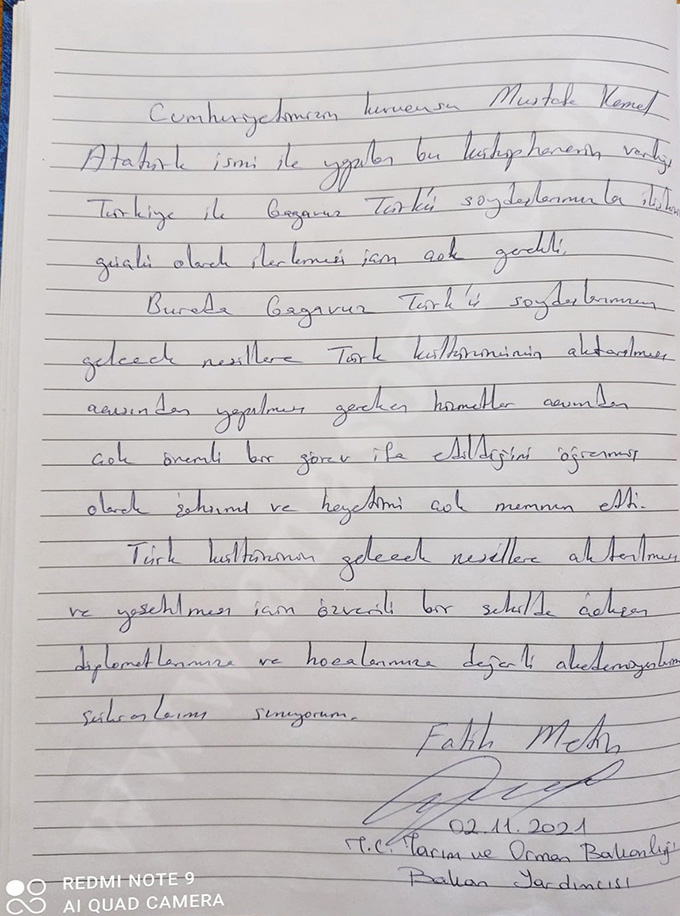 Cumhuriyetimizin kurucusu Mustafa Kemal
Atatürk ismi ile yapılan bu kütüphanenin varlığı
Türkiye ile Gagavuz Türk'ü soydaşlarımızla
olarak ilerlemesi için çok gerekli.
Burada Gagavuz Türk'ü soydaşlarımızın
gelecek nesillere Türk kültürünün aktarılması
açısından yapılması gereken hizmetler açısından
çok önemli bir görev ifa edildiğini öğrenmiş
olarak şahsımı ve heyetimi çok memnun etti.
Türk kültürünün gelecek nesillere aktarılması
ve yaşatılması için özverili bir şekilde çalışan
diplomatlarımıza ve hocalarımıza değerli
şükranlarımı sunuyorum.
Fatih Metin
02.11.2021
T.C. Tarım ve Orman Bakanlığı
Bakan Yardımcısı
REDMI NOTE 9
AI QUAD CAMERA